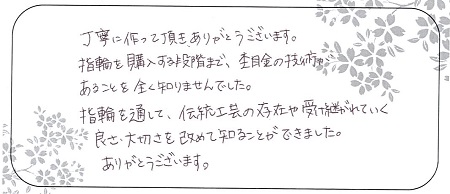 丁寧に作って頂き、ありがとうございます。
指輪を購入する段階まで、杢目金の技術が
あることを全く知りませんでした。
指輪を通して、伝統工芸の存在や受け継がれていく
良さ・大切さを改めて知ることができました。
ありがとうございます。